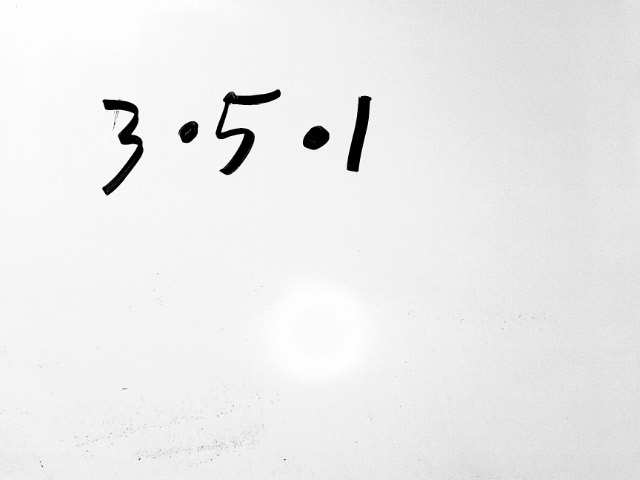 3·5·1